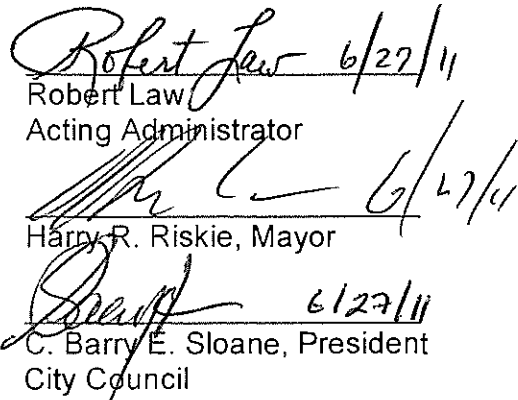 Robert Law 6/27/11
Robert Law
Acting Administrator
6/27/11
Harry R. Riskie, Mayor
6/27/11
C. Barry E. Sloane, President
City Council